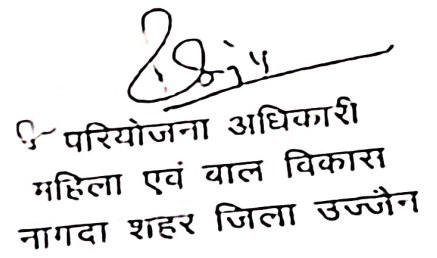 परियोजना अधिकारी
महिला एवं वाल विकास
नागदा शहर जिला उज्जैन